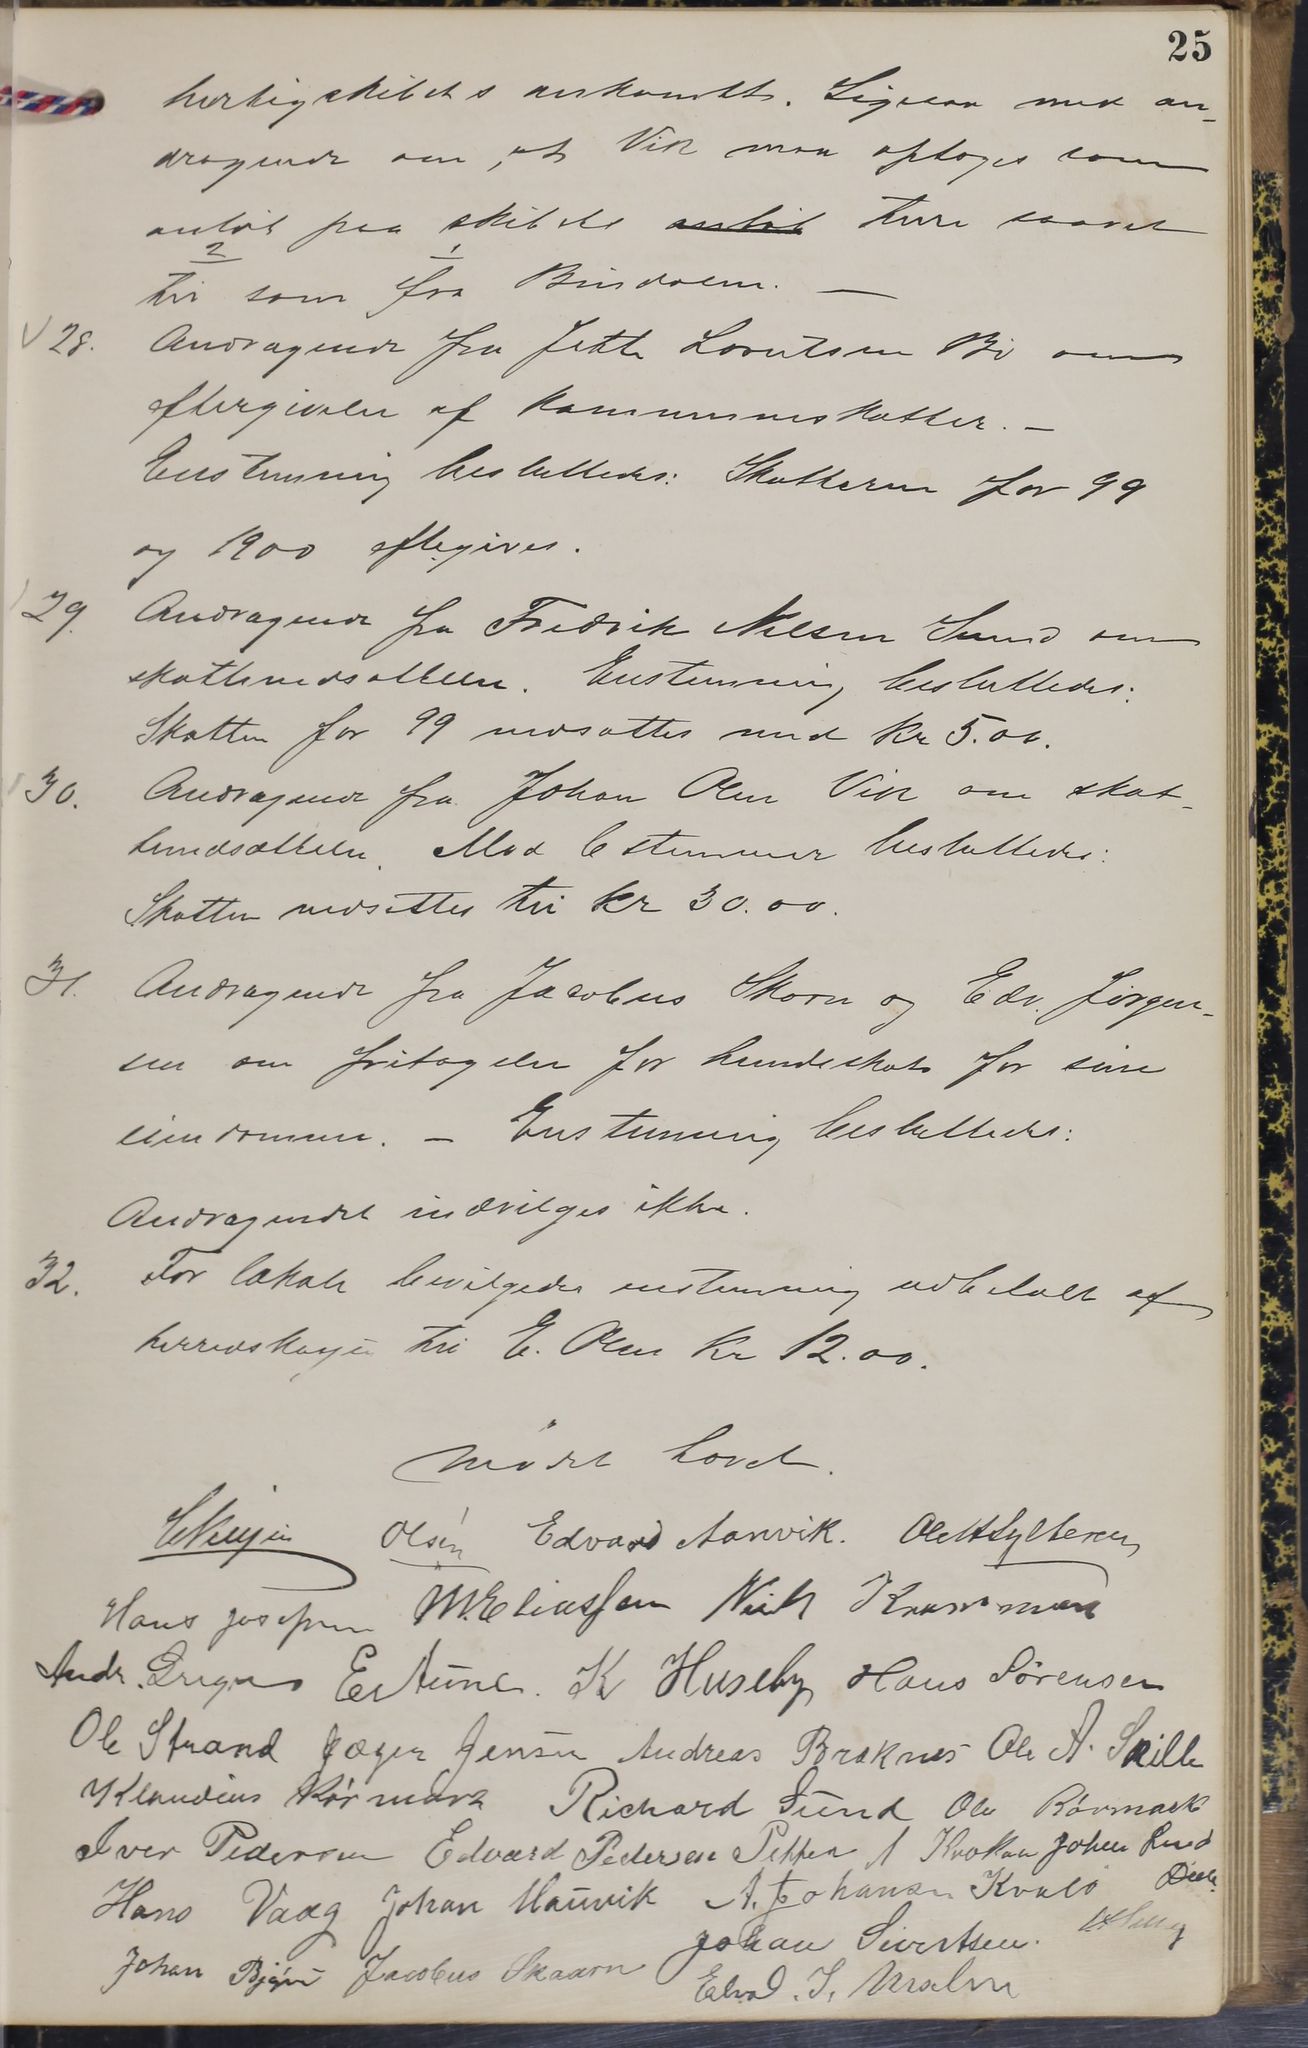 25
hurtigskibets ankomst. Ligesaa med an-
dragende om, at Vik maa optages som
anløb paa skibets anløb ture saavel
2 1
til som fra Bindalen. —
28. Andragende fra Jette Lorntsen Bø om
eftergivelse af kommuneskatter. —
Enstemmig besluttedes: Skatterne for 99
og 1900 eftegives.
29. Andragende fra Fredrik Nilsen Sund om
skattenedsættelse. Enstemmig besluttedes:
Skatten for 99 nedsættes med kr 5.00.
30. Andragende fra Johan Olsen Vik om skat-
tenedsættelse. Mod 6 stemmer besluttedes:
Skatten nedsættes til kr 30.00.
31. Andragende fra Jacobus Skorn og Edv. Jørgen-
sen om fritagelse for hundeskat for sine
eiendomme. — Enstemmig besluttedes:
Andragendet indvilges ikke.
32. For lokale bevilgedes enstemmig udbetalt af
herredskassen til E. Olsen kr 12.00.
Mødet hævet.
Olsén Edvard Aanvik. Ole Hylteren
Hans Josefsen M. Eliassen Nich Kvammen
Andr. E. Aune. K Huseby Hans Sørensen
Ole Strand Jæger Jensen Andreas Braknes Ole A. Skille
Klaudius Rørmark Richard Sund Ole Rørmark
Iver Pedersen Edvard Pedersen Petter A Kvokan Johan Lund
Hans Vaag Johan Mauvik A. Johansen Kvalø
Johan Sivertsen.
Johan Bjøru Jacobus Skaarn Edvad. J.